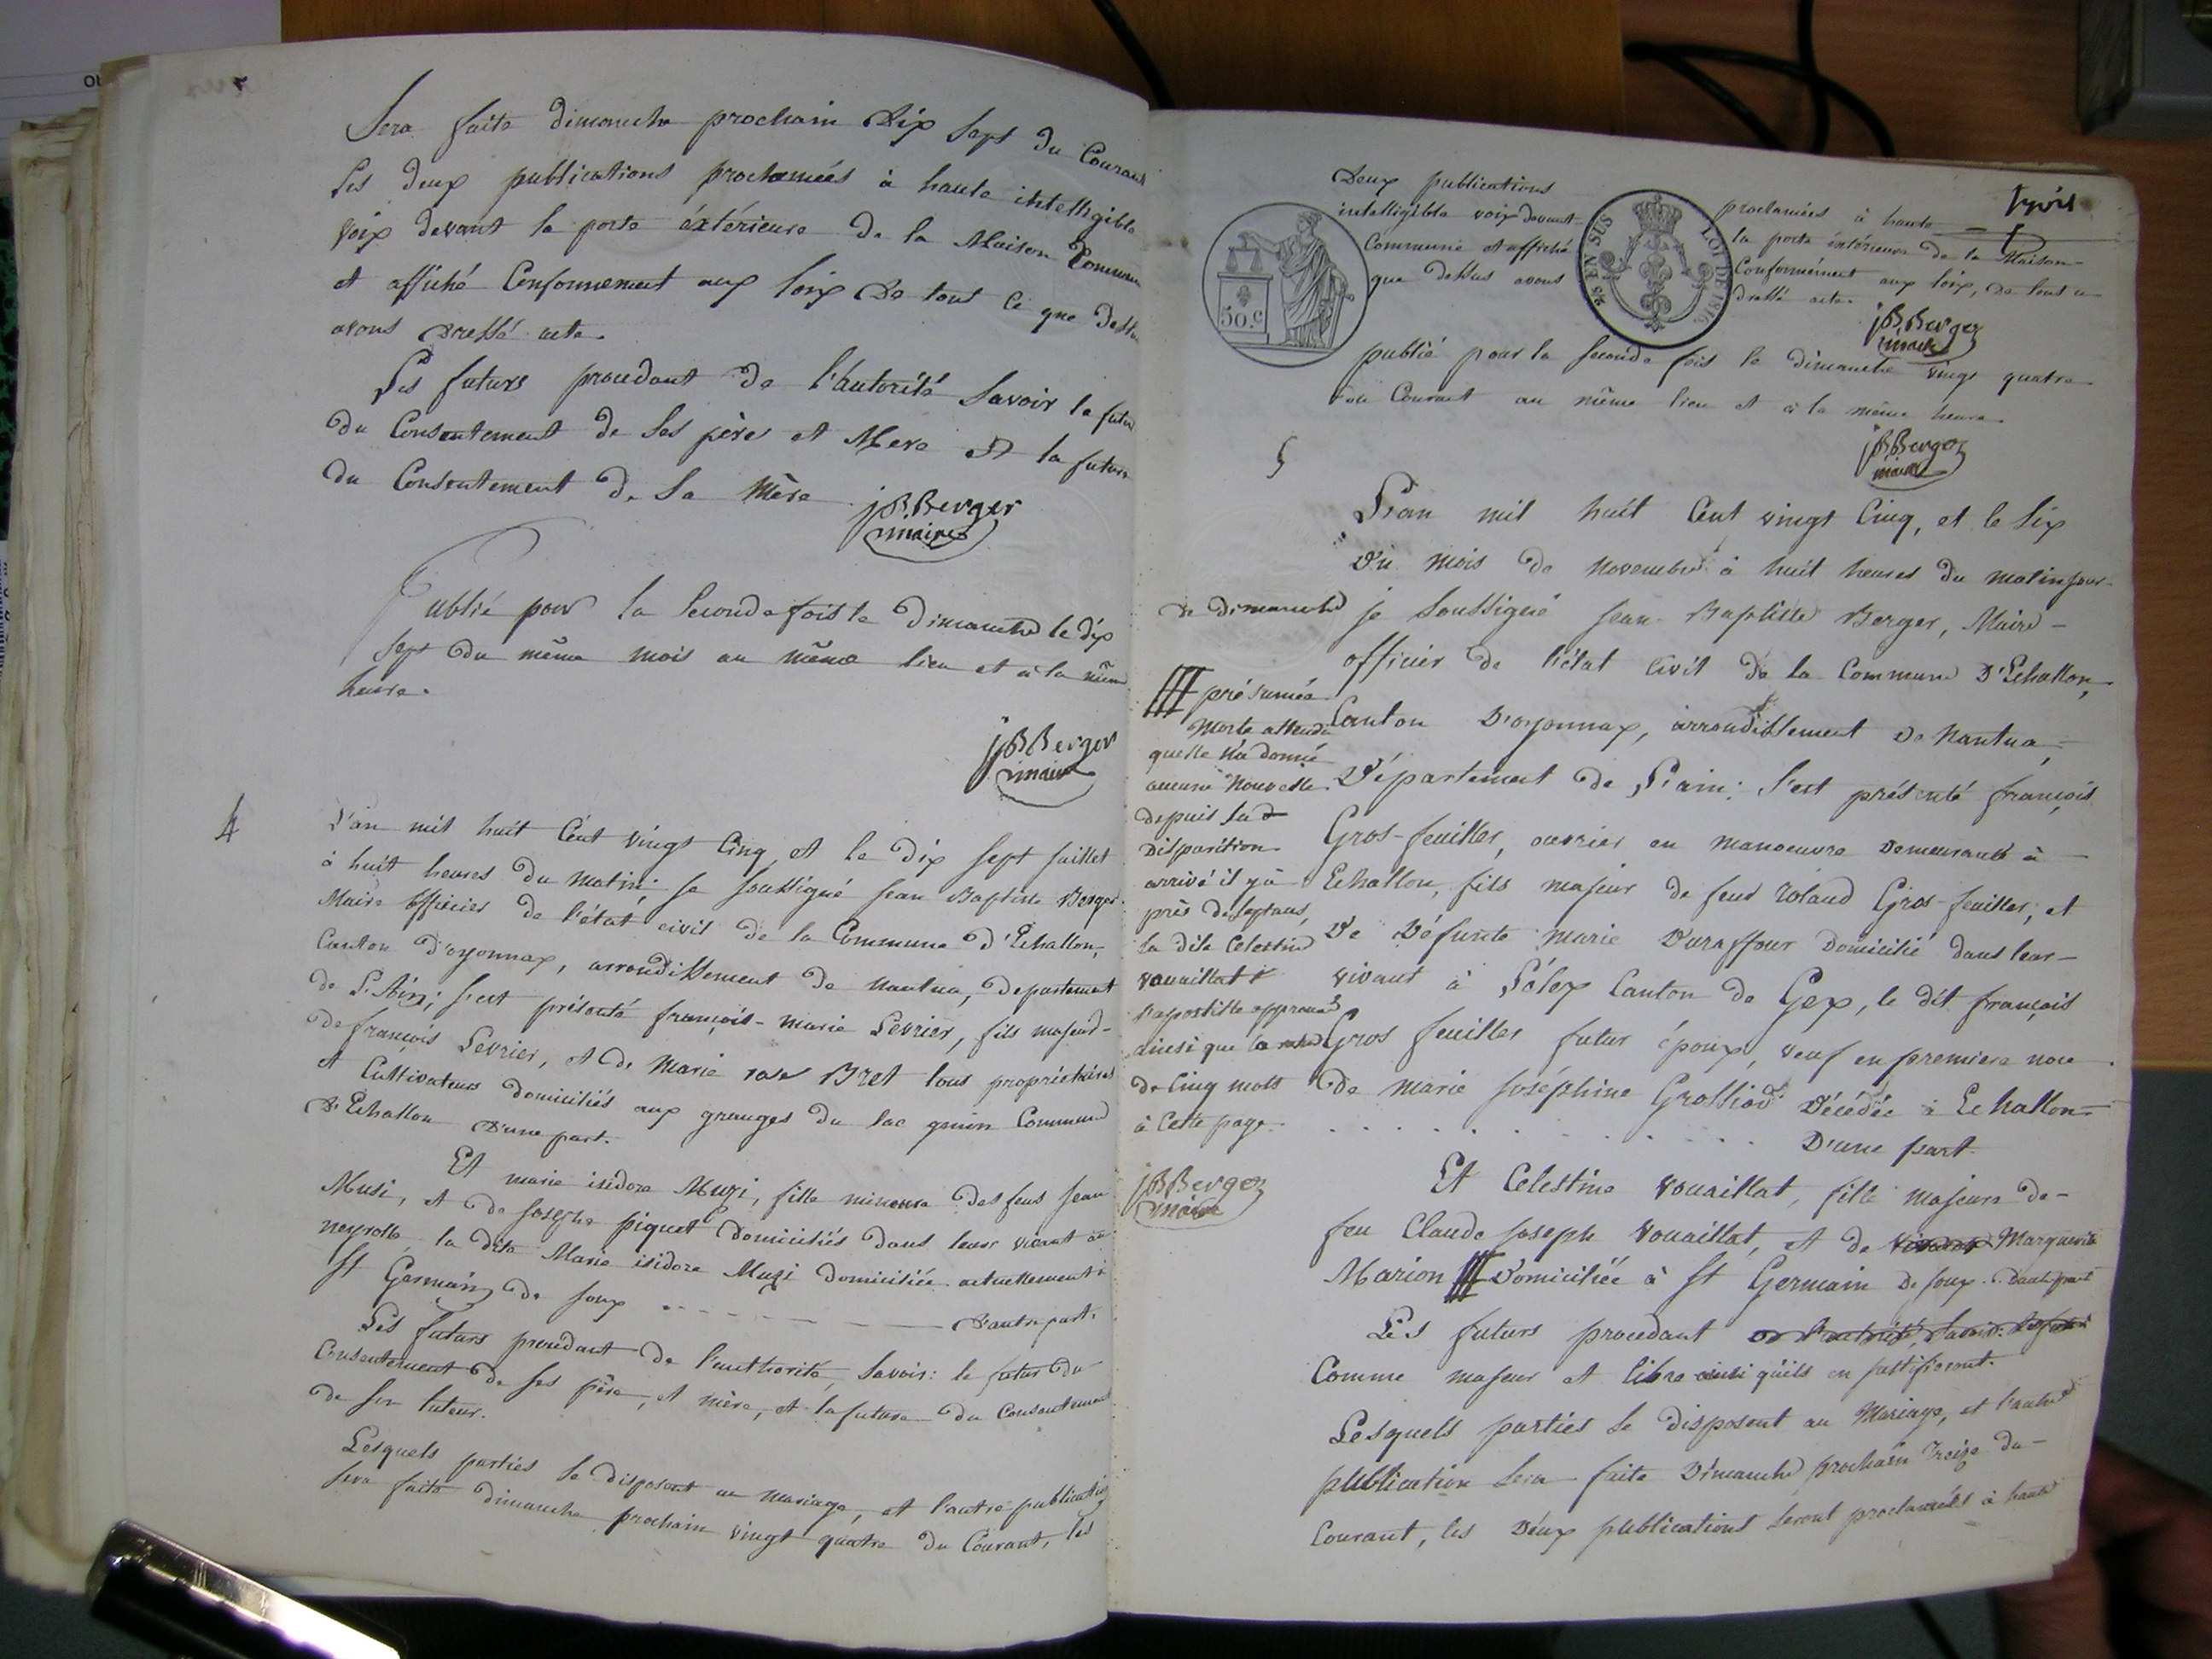 Sera faite dimanche prochain dix sept du Courant
les deux publications proclamées à haute intelligible
voix devant la porte éxtérieure de la Maison Commune
et affiché Conformement aux loix de tout ce que dessus
avons dressé acte.
Les futurs procedant de l'autorité Savoir le futur
du Consentement de ses père et Mere Et la future
du Consentement de Sa Mère
jB.Berger
maire
Publié pour la Seconde fois le Dimanche le dix
sept du même mois au même lieu et a la même
heure.
jBBerger
maire
4
L'an mil huit Cent vingt Cinq, et le dix sept juillet
à huit heures du matin; je soussigné jean Baptiste Berger
Maire officier de l'état civil de la Commune d'Echallon,
Canton D'oyonnax, arrondissement de nantua, departement
de L'Ain; s'est présenté françois-marie Levrier, fils majeur
de françois Levrier, et de Marie rose Bret tous propriétaires
et Cultivateurs domiciliés aux granges du lac genin Commune
D'Echallon D'une part.
Et marie isidore Muzi, fille mineure des feus jean
Musi, et de josephe piquet Domiciliés dans leur vivant au
neyrolle la dite Marie isidore Muzi domiciliée actuellement à
St Germain de joux - - - - - D'autre part.
Les futurs procedant de l'authorité, Savoir: le futur du
Consentement de ses père, et mère, et la future du Consentement
de son tuteur.
Lesquels parties se disposent au mariage, et l'autre publication
sera faite dimanche prochain vingt quatre du Courant, les
Deux publications proclamées à haute
intelligible voix devant la porte extérieure de la Maison
Commune et affiché Conformément aux loix, de tout ce
que dessus avons dressé acte.
50.c
25 EN SUS
LOI DE 1816
jBBerger
maire
publié pour la seconde fois le dimanche vingt quatre
du Courant au même lieu et à la même heure.
jBBerger
maire
5
L'an mil huit Cent vingt Cinq, et le six
du mois de Novembre à huit heures du matin jour
de dimanche je soussigné jean Baptiste Berger, Maire
officier de l'état Civil de la Commune D'Echallon,
Canton D'oyonnax, arrondissement de Nantua,
Département de L'ain; s'est présenté françois
Gros-feuilles, ouvrier en manoeuvre demeurant à
Echallon, fils majeur de feus roland Gros-feuilles, et
De Défunte Marie Duraffour domicilié dans leur
vivant à Lélex Canton de Gex, le dit françois
Gros feuilles futur époux, veuf en premiere noce
de marie joséphine Grossiod Décédée à Echallon
D'une part.
Et Celestine Vouaillat, fille majeure de
feu Claude joseph Vouaillat, et de Marguerite
Marion Domiciliée à St Germain de joux. D'autre part
Les futurs procedant
Comme majeur et libre ainsi qu'ils en justifieront.
Lesquels parties se disposent au Mariage, et l'autre
publication sera faite Dimanche prochain treize du
Courant, les Deux publications seront proclamées à haute
présumée
Morte attendu
quelle n'a donné
aucune Nouvelle
depuis sa
Disparition
arrivé il y à
près de sept ans,
la dite Celestine
Vouaillat
l'apostille approuvé
ainsi que la
de Cinq mots
à Cette page.
jBBerger
maire